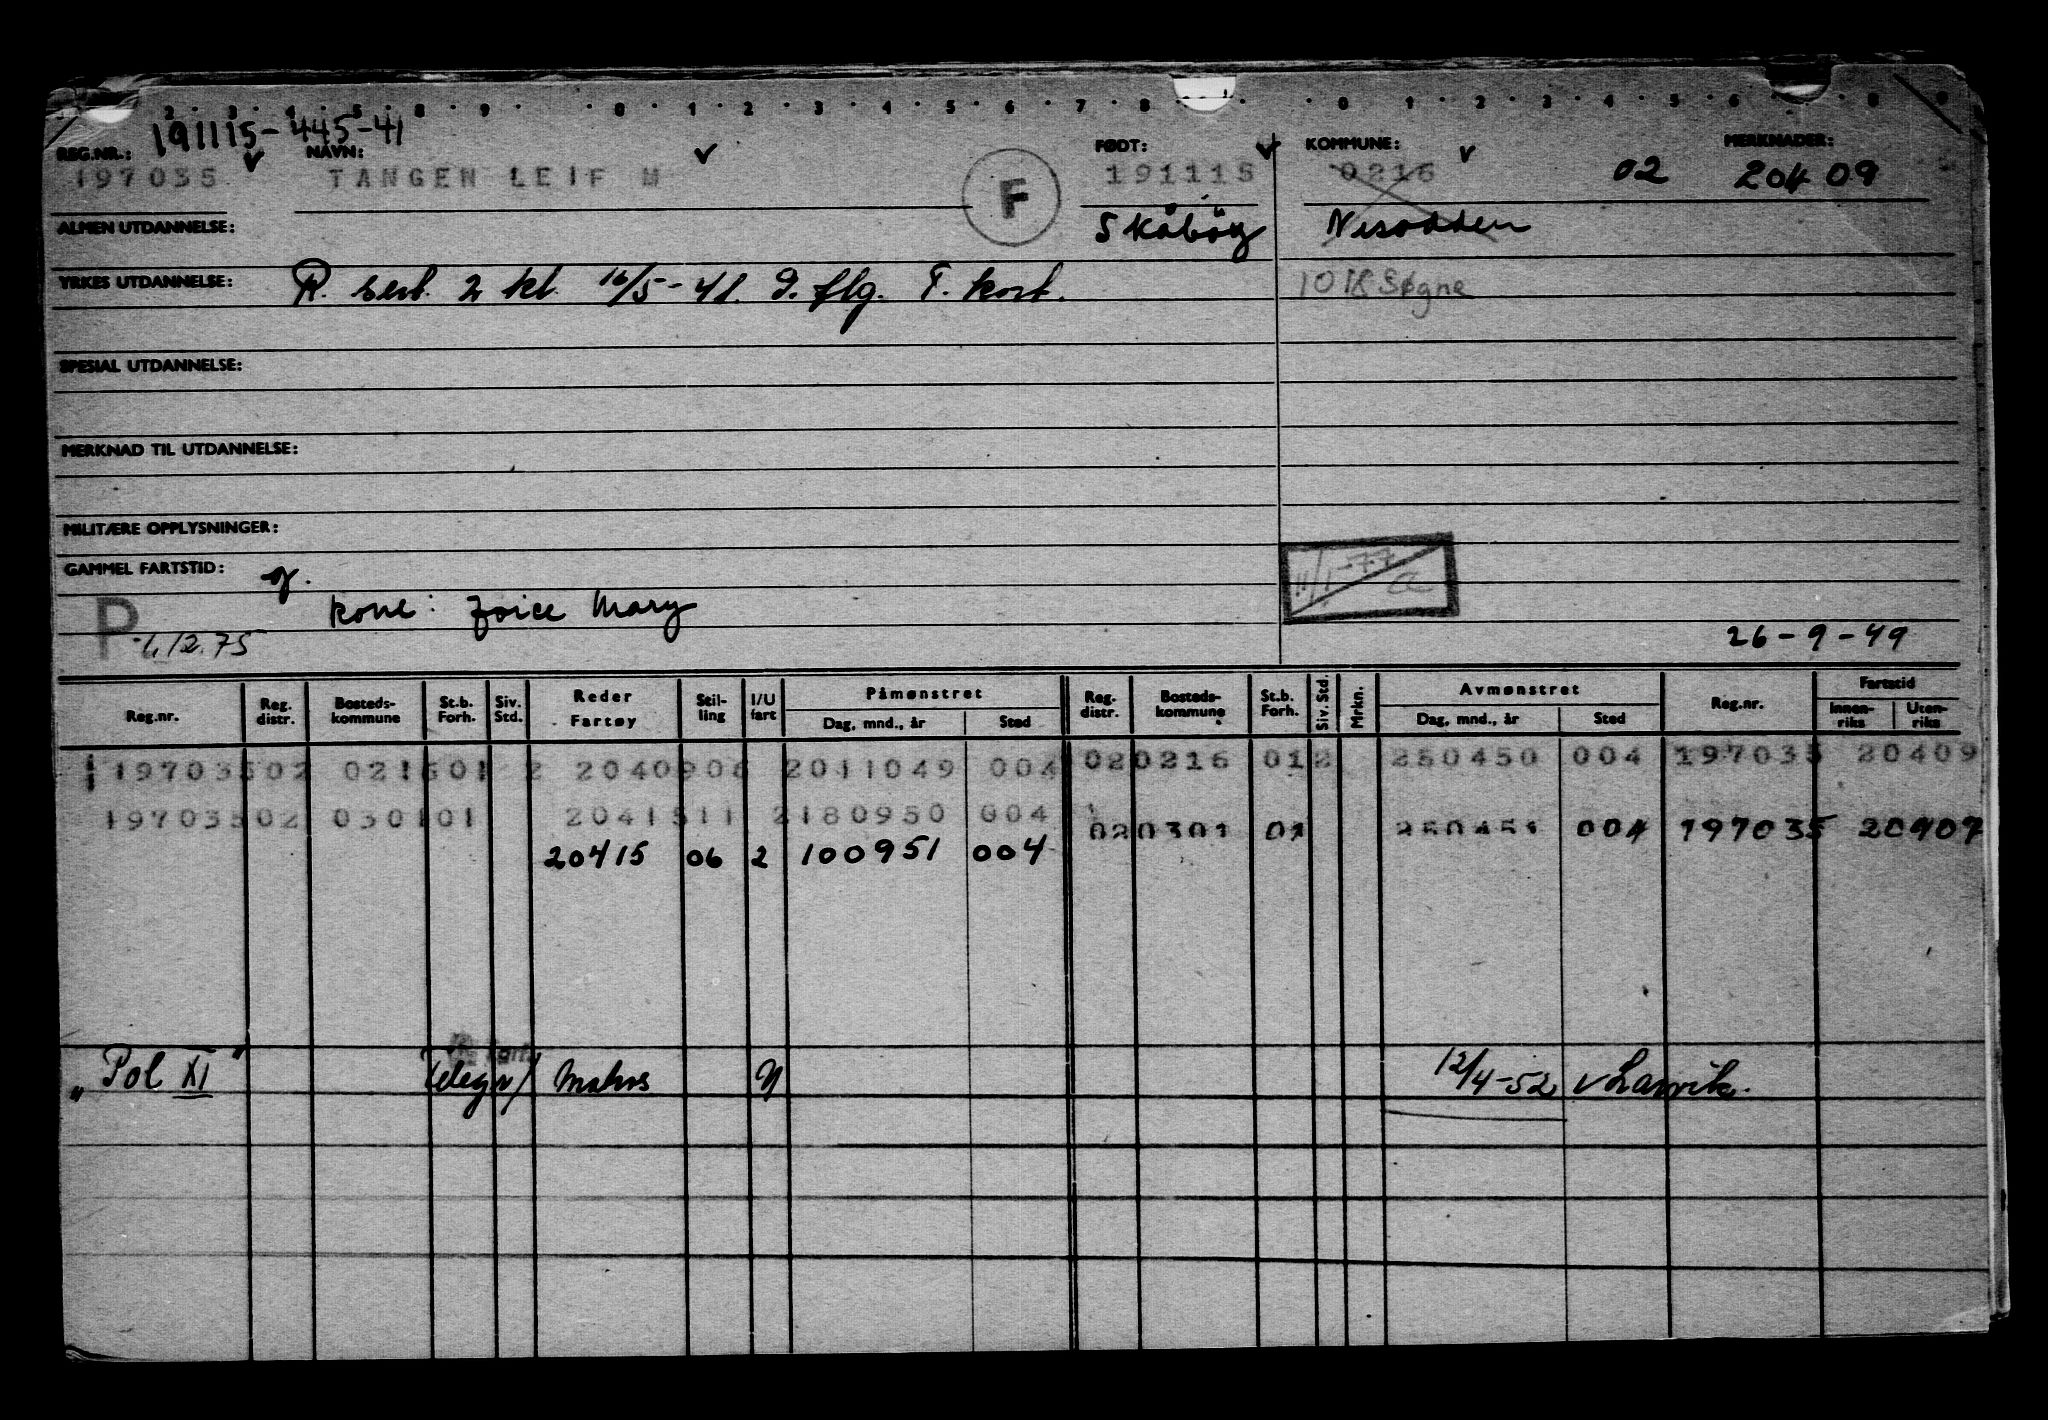 2 3 4 5 8 9 0 1 2 3 4 5 6 7 8 0 1 2 3 4 5 6 8 9
191115-445-41
REG.NR.: NAVN: FØDT: KOMMUNE: MERKNADER:
197035 TANGEN LEIF M F 191115 0216 02 20409
ALMEN UTDANNELSE: Nesodden
YRKES UTDANNELSE: R. sert. 2 kl. 16/5-41. I. flg. F. kort. 1018 Søgne
SPESIAL UTDANNELSE:
MERKNAD TIL UTDANNELSE:
MILITÆRE OPPLYSNINGER:
GAMMEL FARTSTID: g.
11/1-77
P kone: Joice Mary
1/12.75 26-9-49
Reg.nr. Reg. distr. Bosteds-kommune St.b. Forh. Siv. Std. Reder Fartøy Stil-ling I/U fart Påmønstret Dag, mnd., år Sted Reg. distr. Bosteds-kommune St.b. Forh. Siv. Std. Mrkn. Avmønstret Dag, mnd., år Sted Reg.nr. Fartstid Innen-riks Uten-riks
197035 02 0216 01 2 20409 06 2 011049 004 02 0216 01 2 250450 004 197035 20409
197035 02 0301 01 20415 11 2 180950 004 02 0301 01 250451 004 197035 20409
20415 06 2 100951 004
"Pol XI" Telegr/ Mahos U 12/4-52 v Larvik.